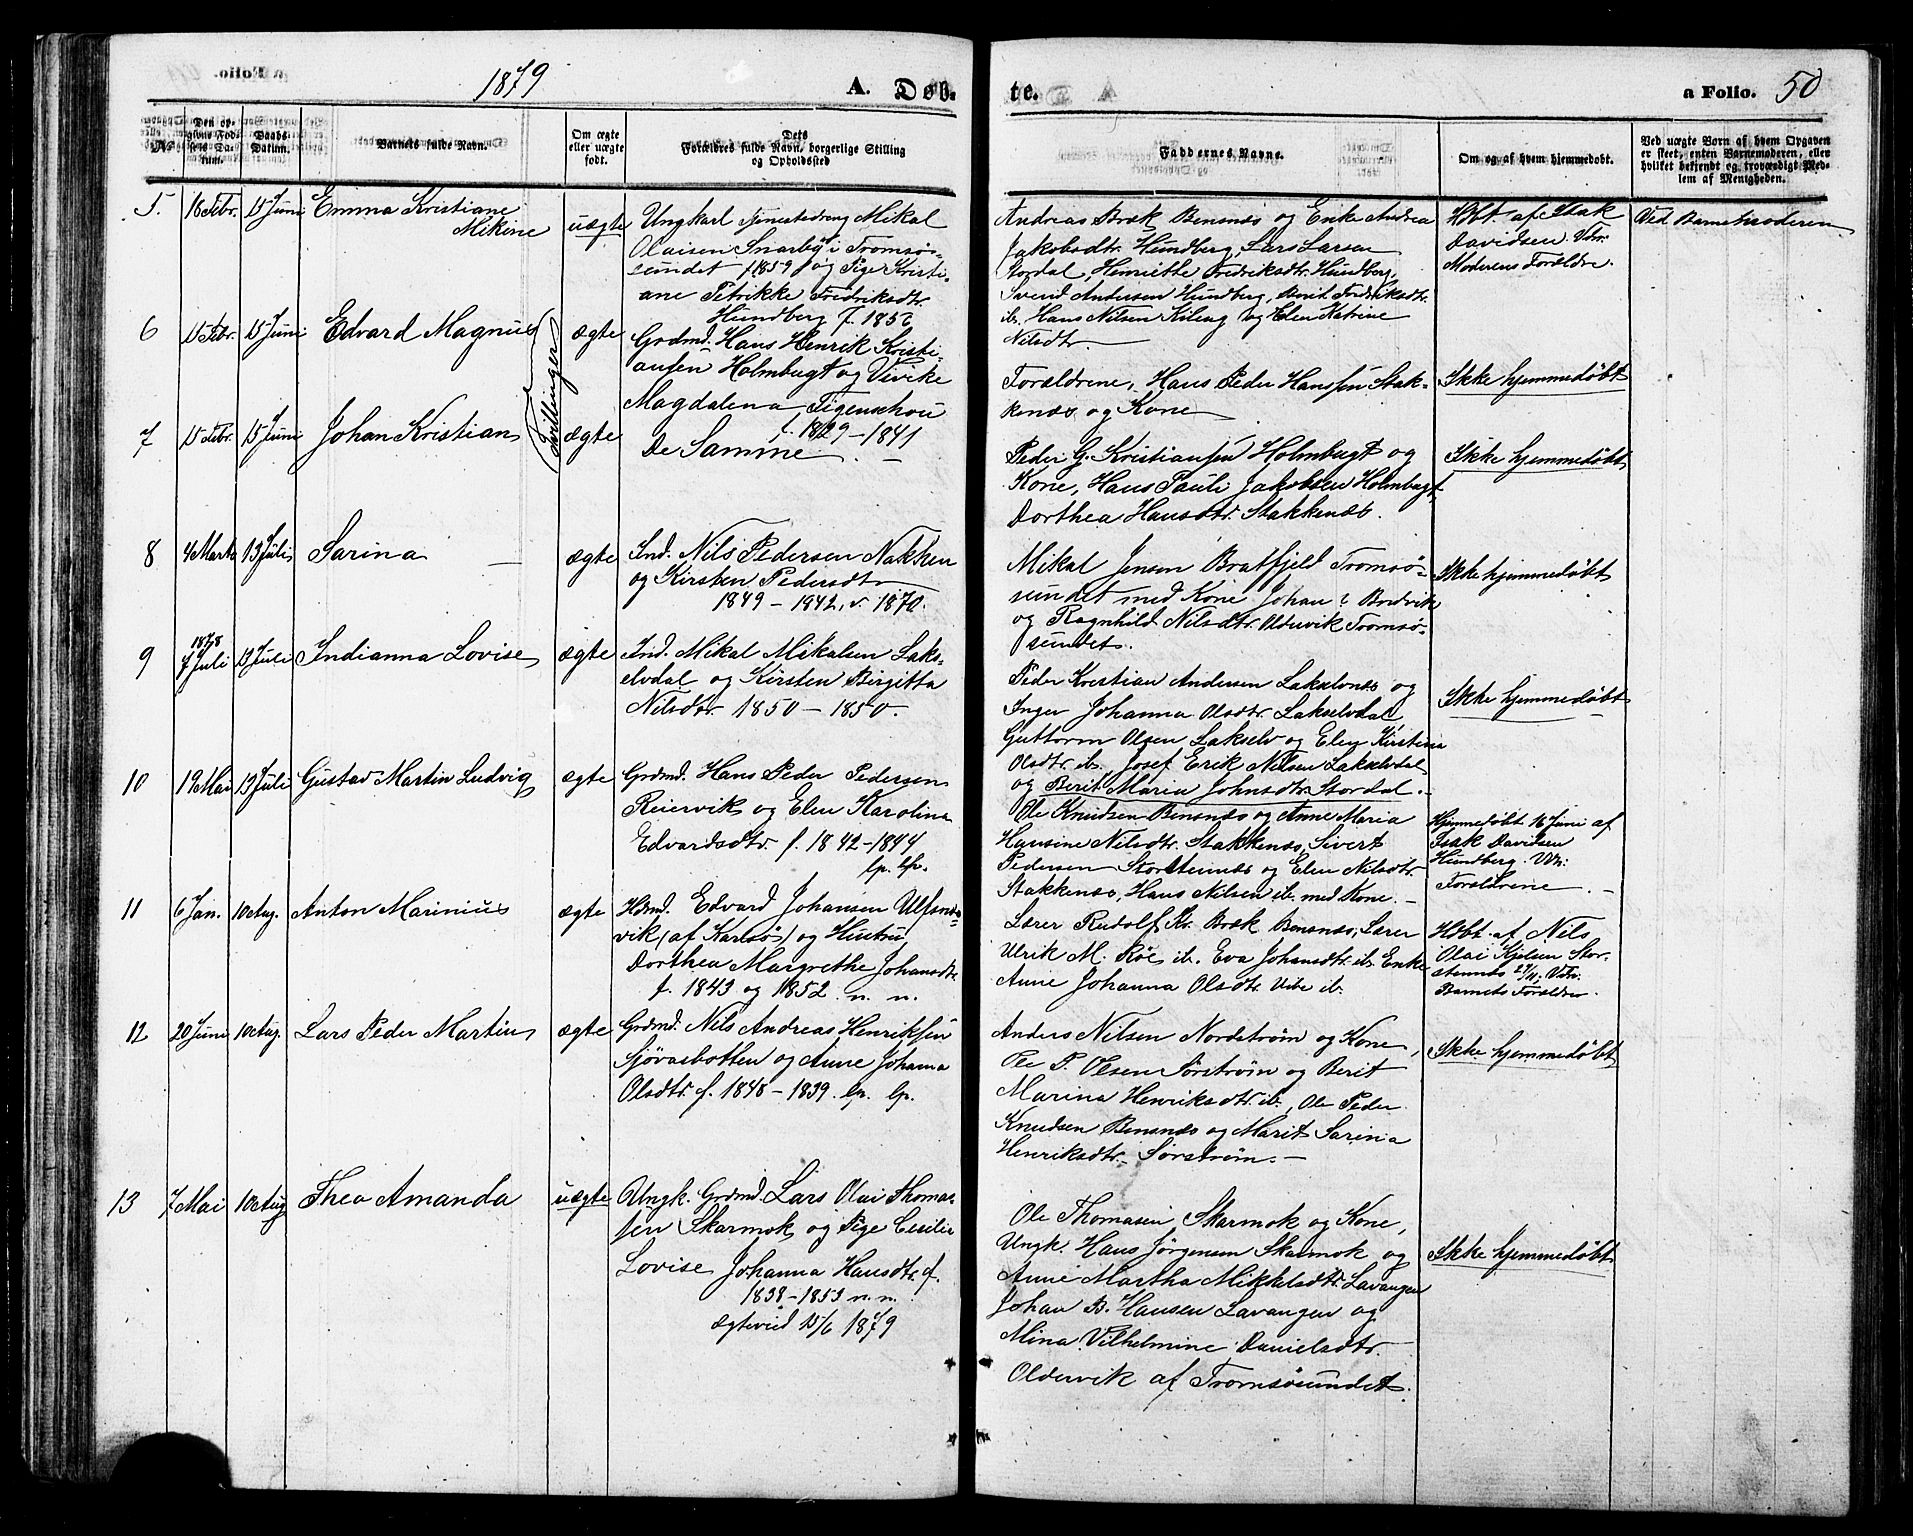 1879
A. Døb-
te.
a Folio. 50
No
Den opgivne Fødsels Datum.
Daabs Datum.
Barnets fulde Navn.
Om ægte eller uægte født.
Dets Forældres fulde Navn, borgerlige Stilling og Opholdssted
Faddernes Navne.
Om og af hvem hjemmedøbt.
Ved uægte Børn af hvem Opgaven er skeet, enten Barnemoderen, eller hvilket bekjendt og troværdigt Medlem af Menigheden.
5. 18 Febr. 15 Juni Emma Kristiane
Mikine
uægte
Ungkarl tjenestedreng Mikal
Olaisen Snarby i Tromsø-
sundet f 1859 og Pige Kristi-
ane Petrikke Fredriksdtr.
Hundberg f. 1856
Andreas Bræk Bensnæs og Enke Andrea
Jakobsdtr. Hundberg, Lars Larsen
Jordal, Henriette Fredriksdtr. Hundberg,
Svend Andersen Hundberg, Berit Fredriksdtr.
ib. Hans Nilsen Kileng og Elen Katrine
Nilsdtr.
Hdbt. af Isak
Davidsen. Vdn.
Moderens Forældre.
Ved Barnemoderen
6 15 Febr. 15 Juni Edvard Magnus
Tvillinger
ægte
Grdmd. Hans Henrik Kristi-
ansen Holmbugt og Vivike
Magdalena Figenschou
f. 1829 - 1841
Forældrene, Hans Peder Hanssen Stak-
kenæs og Kone
Ikke hjemmedøbt
7 15 Febr. 15 Juni Johan Kristian
ægte
De Samme -
Peder G. Kristiansen Holmbugt og
Kone, Hans Pauli Jakobsen Holmbugt
Dorthea Hansdtr. Stakkenæs.
Ikke hjemmedøbt
8 4 Marts 13 Juli Sarina -
ægte
Ind. Nils Pedersen Nakken
og Kirsten Pedersdtr
1849 - 1842. v. 1870.
Mikal Jensen Bratfjeld Tromsø-
sundet med Kone Johan ? Bredvik
og Ragnhild Nilsdtr. Oldervik Tromsø-
sundet.
Ikke hjemmedøbt
9 1878 7 Juli 13 Juli Indianna Lovise
ægte
Ind. Mikal Mikalsen Laks-
elvdal og Kirsten Birgitta
Nilsdtr. 1850 - 1850.
Peder Kristian Andersen Lakselvnæs og
Inger Johanna Olsdtr. Lakselvdal
Guttorm Olsen Lakselv og Elen Kirstina
Olsdtr ib. Josef Erik Nilsen Lakselvdal
og Berit Maria Johnsdtr. Stordal.
Ikke hjemmedøbt
10 19 Mai 13 Juli Gustav Martin Ludvig
ægte
Grdmd. Hans Peder Pedersen
Reiervik og Elen Karolina
Edvardsdtr. f. 1842 - 1844
lp. lp.
Ole Knudsen Bensnæs og Anne Maria
Hansine Nilsdtr. Stakkenæs, Sivert
Pedersen Storsteinnæs og Elen Nilsdtr.
Stakkenæs, Hans Nilsen ib. med Kone. -
Hjemmedøbt 16 Juni af
Isak Davidsen
Hundberg. Vdn:
Forældrene. -
11 6 Jan. 10 Aug. Anton Marinius
ægte
Hdmd. Edvard Johansen Ulfsnæs-
vik (af Karlsø) og Hustru
Dorthea Margrethe Johansdtr.
f. 1843 og 1852. n. n.
Lærer Rudolf Kr. Bræk Bensnæs, Lærer
Ulrik M. Röe ib. Eva Johansdtr. ib. Enke
Anne Johanna Olsdtr. Vibe ib.
Hdbt. af Nils
Olai Kjelsen Stor-
stennæs 29/11. Vdn.
Barnets Forældre.
12 20 Juni 10 Aug. Lars Peder Martin
ægte
Grdmd. Nils Andreas Henriksen
Sjövasbotten og Anne Johanna
Olsdtr. f. 1848 - 1839. lp. lp.
Anders Nilsen Nordstrøm og Kone,
Ole P. Olsen Sørstrøm og Berit
Marina Henriksdtr. ib., Ole Peder
Knudsen Bensnæs og Marit Sarina
Henriksdtr. Sørstrøm. -
Ikke hjemmedøbt
13 7 Mai 10 Aug Thea Amanda
uægte
Ungk. Grdmd. Lars Olai Thomas-
sen Skarmok og Pige Cecilie
Lovise Johanna Hansdtr. f.
1838 - 1853 n. n.
Ægteviet 15/6 1879
Ole Thomasen Skarmok og Kone,
Ungk. Hans Jørgensen Skarmok og
Anne Martha Mikkelsdtr. Lavangen
Johan B. Hansen Lavangen og
Mina Vilhelmine Danielsdtr.
Oldervik af Tromsøsundet.
Ikke hjemmedøbt